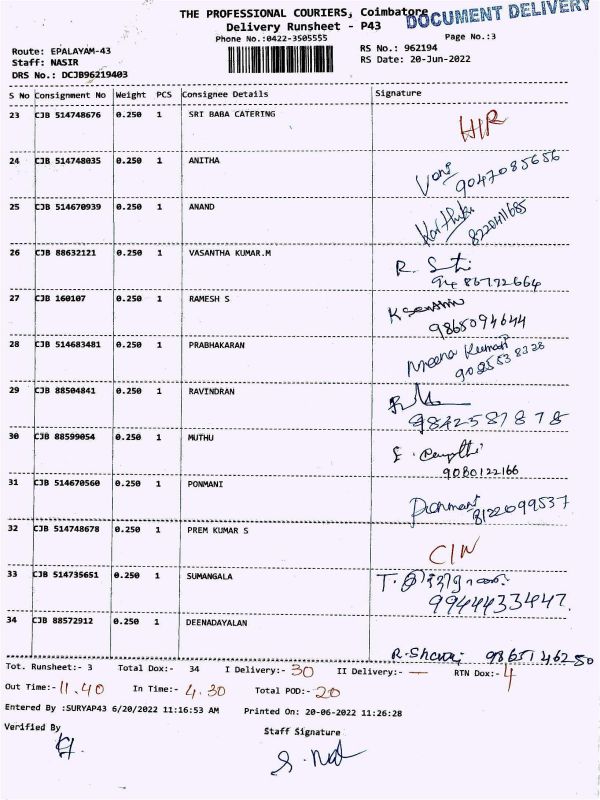 THE PROFESSIONAL COURIERS, Coimbatore
DOCUMENT DELIVERY
Delivery Runsheet - P43
Phone No.:0422-3505555
Page No.:3
Route: EPALAYAM-43
RS No.: 962194
Staff: NASIR
RS Date: 20-Jun-2022
DRS No.: DCJB96219403
S No Consignment No Weight PCS Consignee Details Signature
23 CJB 514748676 0.250 1 SRI BABA CATERING
24 CJB 514748035 0.250 1 ANITHA Vani 9047085656
25 CJB 514670939 0.250 1 ANAND Karthika 8220411685
26 CJB 88632121 0.250 1 VASANTHA KUMAR.M
27 CJB 160107 0.250 1 RAMESH S 9865094644
28 CJB 514683481 0.250 1 PRABHAKARAN Meena Kumari
29 CJB 88504841 0.250 1 RAVINDRAN 9842587878
30 CJB 88599054 0.250 1 MUTHU 9080122166
31 CJB 514670560 0.250 1 PONMANI Ponmani 8122099537
32 CJB 514748678 0.250 1 PREM KUMAR S CIN
33 CJB 514735651 0.250 1 SUMANGALA 9944433447.
34 CJB 88572912 0.250 1 DEENADAYALAN 9865146250
Tot. Runsheet:- 3 Total Dox:- 34 I Delivery:- 30 II Delivery:- — RTN Dox:- 4
Out Time:- 11.40 In Time:- 4.30 Total POD:- 20
Entered By :SURYAP43 6/20/2022 11:16:53 AM Printed On: 20-06-2022 11:26:28
Verified By
Staff Signature